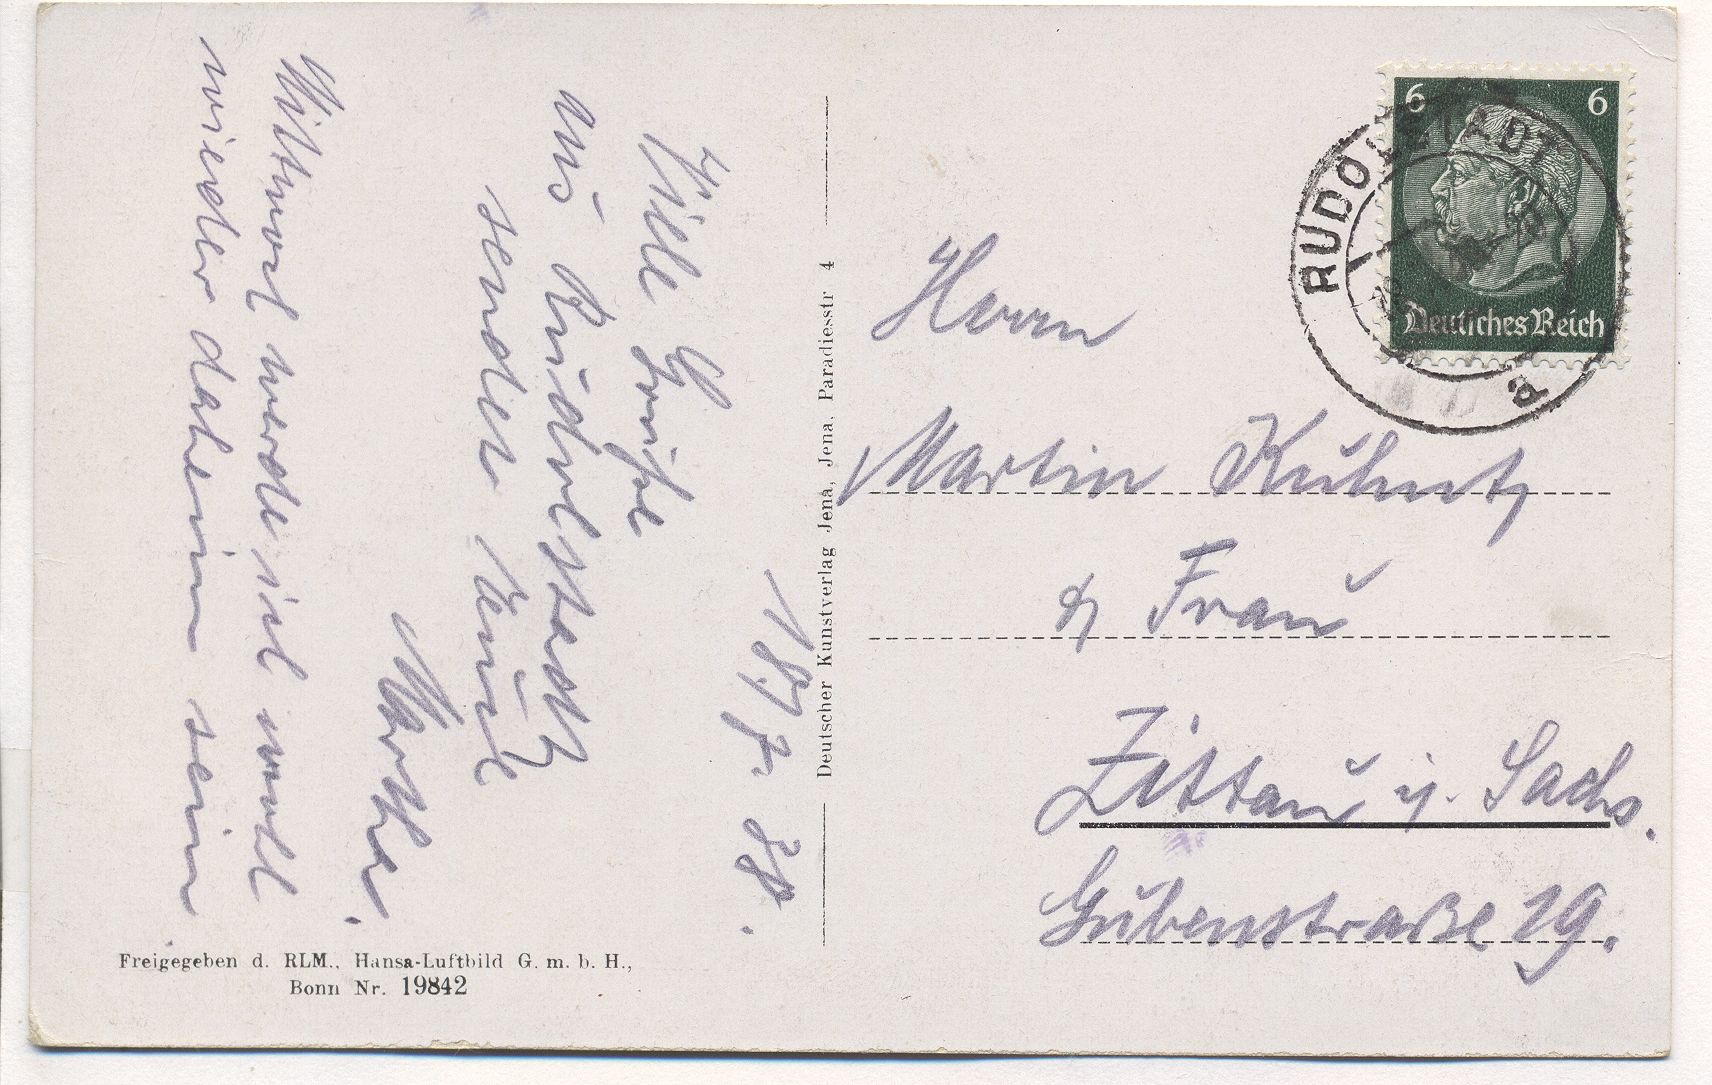 18. 7. 38.
Viele Grüße
aus Rudolstadt
senden
Marthe.
Mittwoch werde ich wohl
wieder daheim sein
Freigegeben d. RLM., Hansa-Luftbild G. m. b. H.,
Bonn Nr. 19842
Deutscher Kunstverlag Jena, Jena, Paradiesstr 4
6 6
Deutsches Reich
RUDOLSTADT
a
Herrn
Martin Kuhnt
& Frau
Zittau i. Sachs.
Gubenstraße 29.